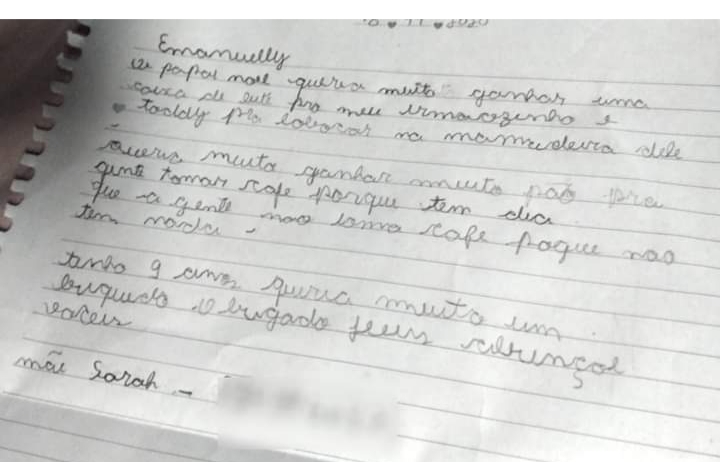 11 2020
Emanuelly
papai noel queria muito ganhar uma
caixa de leite pro meu irmaozinho e
toddy pra colocar na mamadeira dele
queria muito ganhar muito pão pra
gente tomar cafe porque tem dia
que a gente nao toma cafe poque nao
tem nada.
tenho 9 anos queria muito um
briquedo obrigado jesus abençoe
voceis
mãe Sarah -